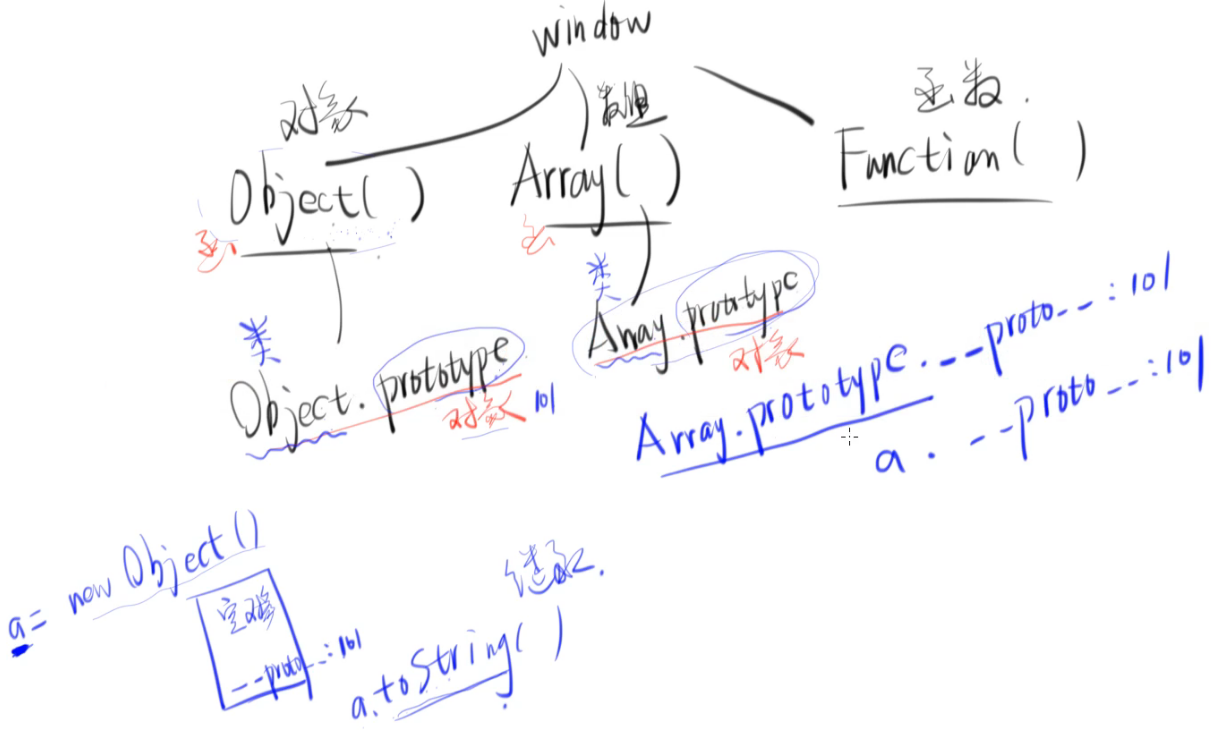 window
对象
数组
函数.
Object( )
Array( )
Function( )
函
函
类
类
Object.prototype
对象 101
Array.prototype
对象
Array.prototype.__proto__:101
a.__proto__:101
a= new Object()
空对象
__proto__:101
继承.
a.toString( )